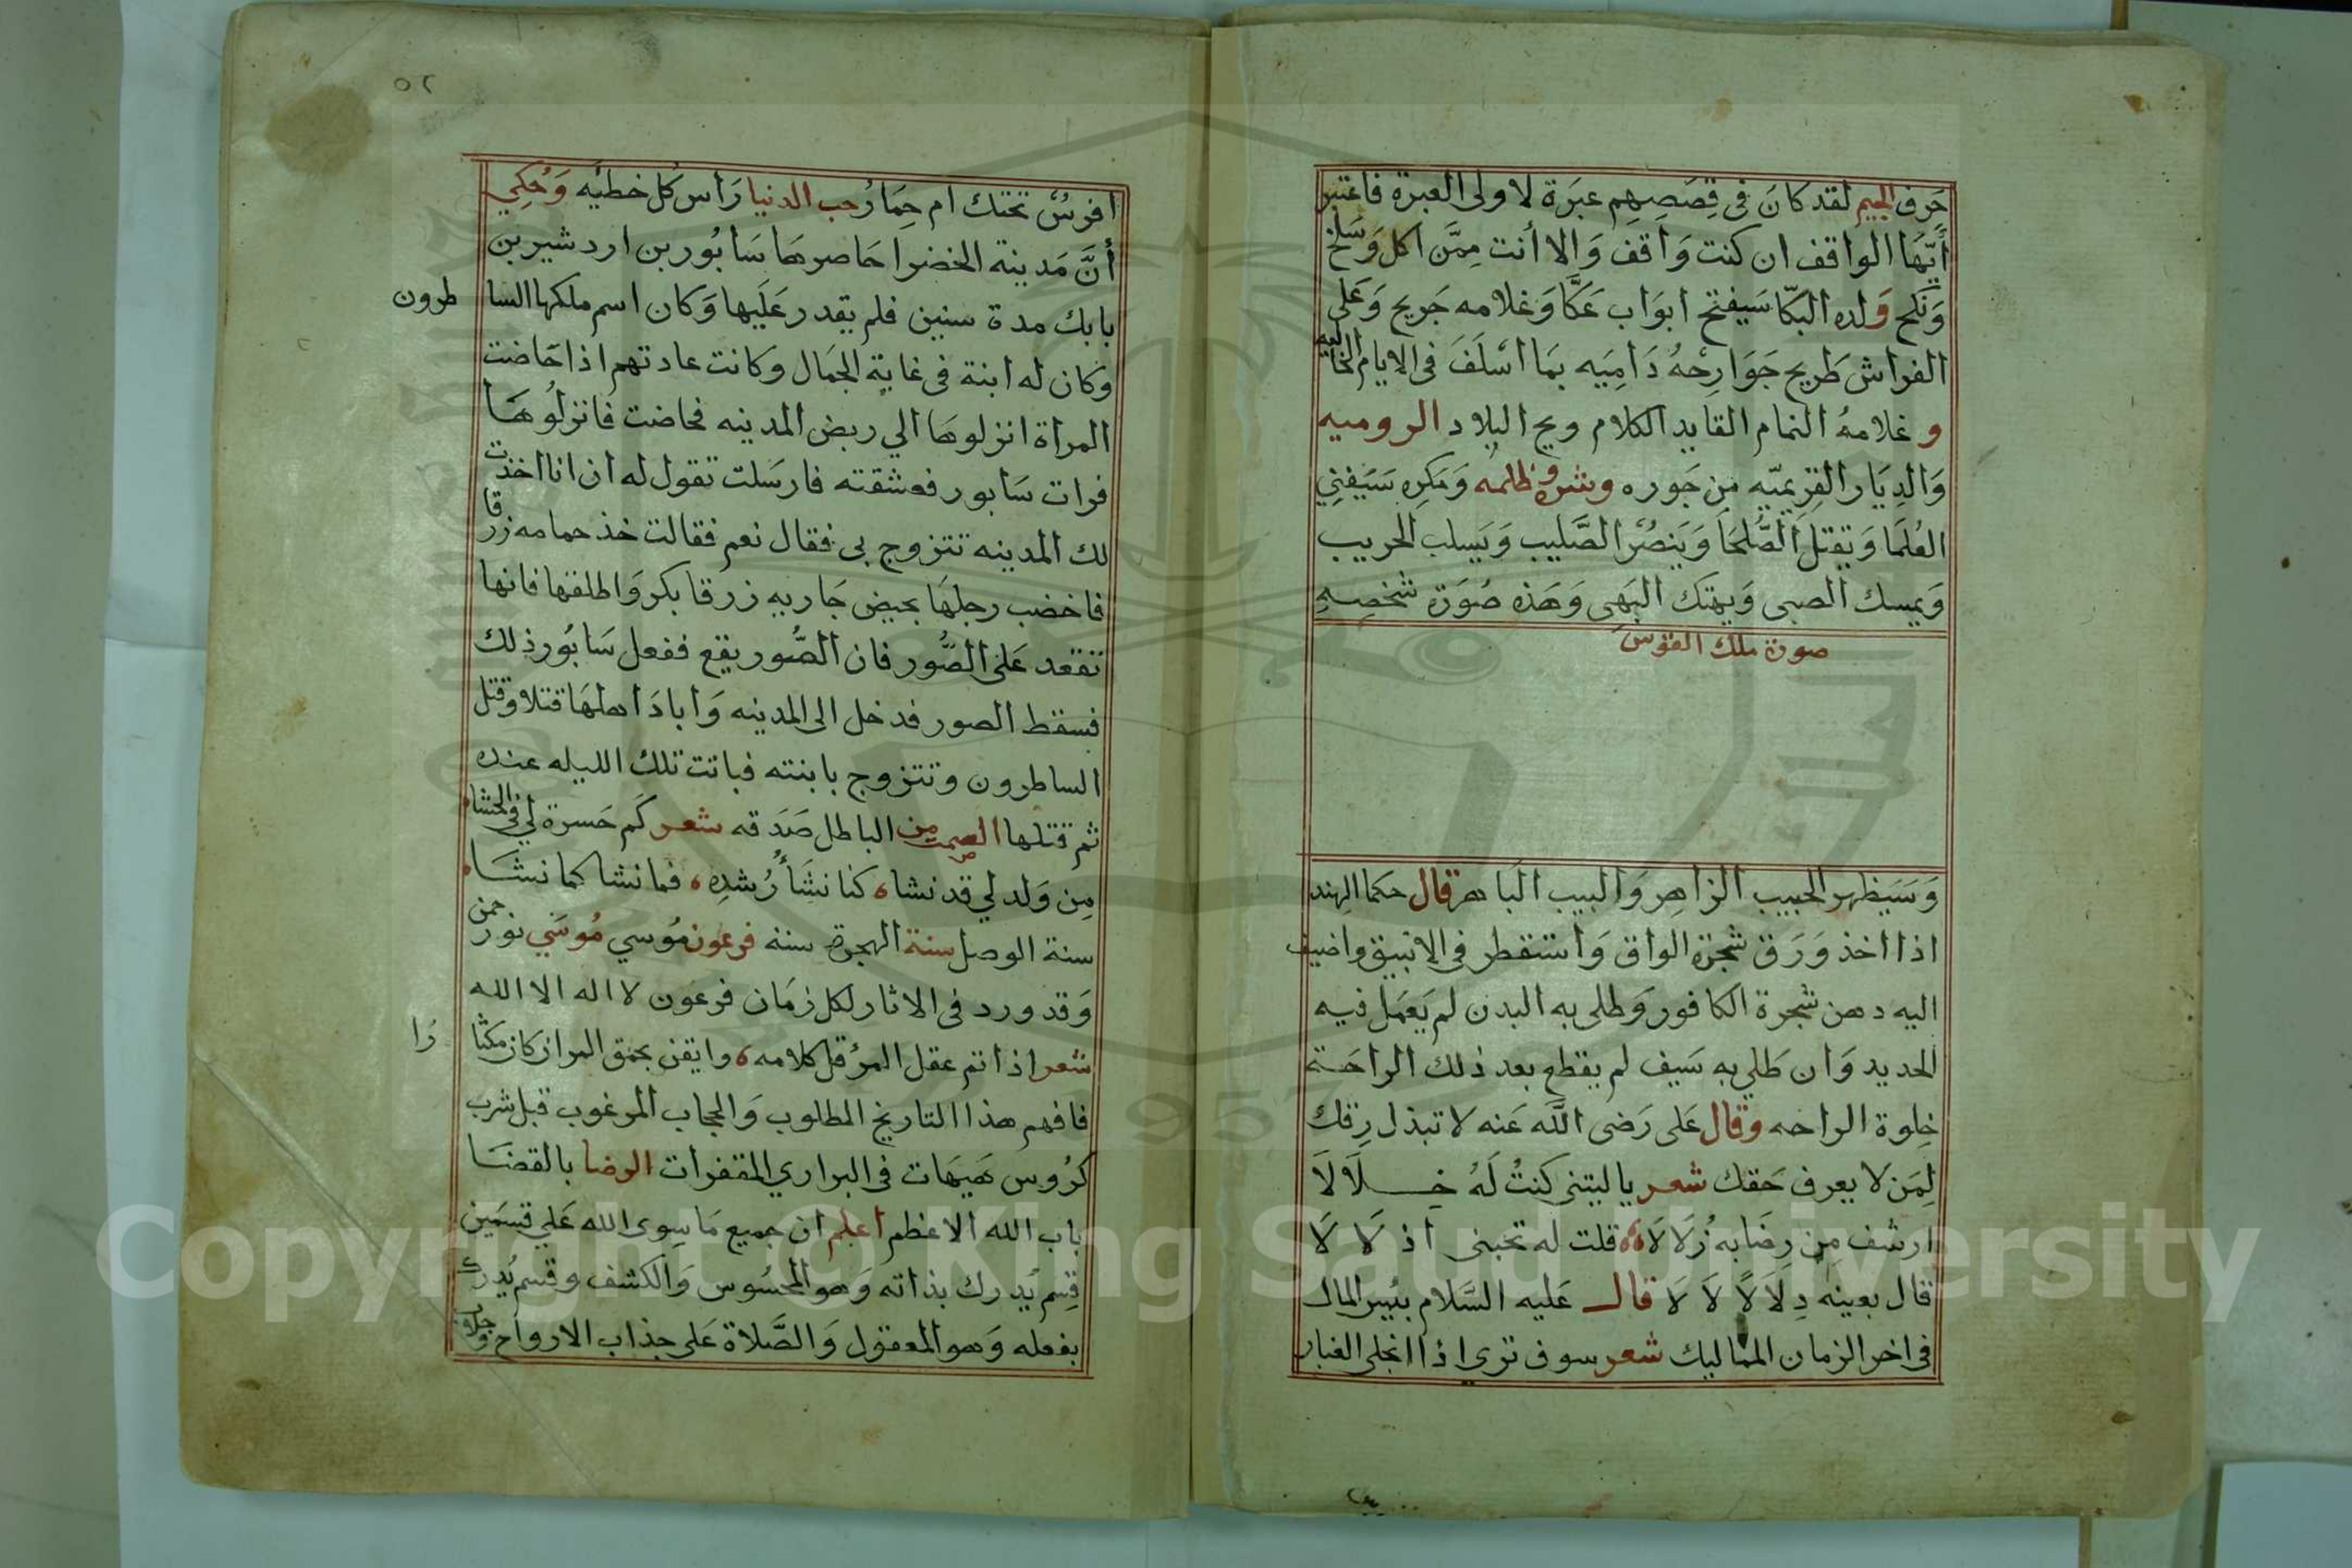 حرف الجيم لقد كان في قصصهم عبرة لاولى العبرة فاعتبر
أيها الواقف ان كنت واقف والا أنت ممن اكل وسلخ
ونكح وولده البكا سيفتح ابواب عكا وغلامه جريح وعلى
الفراش طريح جوارحه داميه بما اسلف في الايام الخاليه
و غلامه النمام القايد الكلام ويح البلاد الروميه
والديار القريميه من جوره وشره وظلمه ومكره سيفني
العلما ويقتل الصلحا وينصر الصليب ويسلب الحريب
ويمسك الصبى ويهتك البهى وهذه صورة شخصه
صورة ملك القوس
وسيظهر الحبيب الزاهر والبيب الباهر قال حكما الهند
اذا اخذ ورق شجرة الواق واستقطر في الانبيق واضيف
اليه دهن شجرة الكافور وطلى به البدن لم يعمل فيه
الحديد وان طلي به سيف لم يقطع بعد ذلك الراحة
خلوة الراحه وقال على رضى الله عنه لا تبذل رقك
لمن لا يعرف حقك شعر يا ليتنى كنت له خلالا
ارشف من رضابه زلالا قلت له تحبنى اذ لا لا
قال بعينه دلالا لا لا قال عليه السلام بئس المال
في اخر الزمان المماليك شعر سوف ترى اذا انجلى الغبار
٥٢
افرس تحتك ام حمار حب الدنيا راس كل خطيه وحكي
أن مدينة الخضرا حاصرها سابور بن اردشير بن
بابك مدة سنين فلم يقدر عليها وكان اسم ملكها السا
طرون
وكان له ابنة في غاية الجمال وكانت عادتهم اذا حاضت
المراة انزلوها الي ربض المدينه فحاضت فانزلوها
فرات سابور فعشقته فارسلت تقول له ان انا اخذت
لك المدينه تتزوج بى فقال نعم فقالت خذ حمامه زرقا
فاخضب رجلها بحيض جاريه زرقا بكر واطلقها فانها
تقعد على الصور فان الصور يقع ففعل سابور ذلك
فسقط الصور فدخل الى المدينه وابادا اهلها قتلا وقتل
الساطرون وتتزوج بابنته فباتت تلك الليله عنده
ثم قتلها الصمت من الباطل صدقه شعر كم حسرة لي في الحشا
من ولد لي قد نشا كنا نشأ رشده فما نشا كما نشا
سنة الوصل سنة الهجرة سنه فرعون موسي موسي نور حمن
وقد ورد في الاثار لكل زمان فرعون لا اله الا الله
شعر اذا تم عقل المرء قل كلامه وايقن بحمق المر ان كان مكثا
را
فافهم هذا التاريخ المطلوب والحجاب المرغوب قبل شرب
كروس هيهات في البراري المقفرات الرضا بالقضا
باب الله الاعظم اعلم ان جميع ما سوى الله علي قسمين
قسم يدرك بذاته وهو المحسوس والكشف وقسم يدرك
بفعله وهو المعقول والصلاة على جذاب الارواح
Copyright © King Saud University